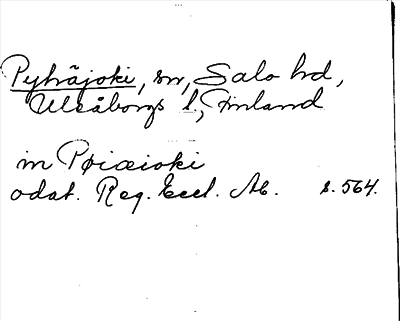 Pyhäjoki, sn, Salo hd,
Uleåborgs l., Finland
in Pøiæioki
odat. Reg. Eccl. Ab. s. 564.